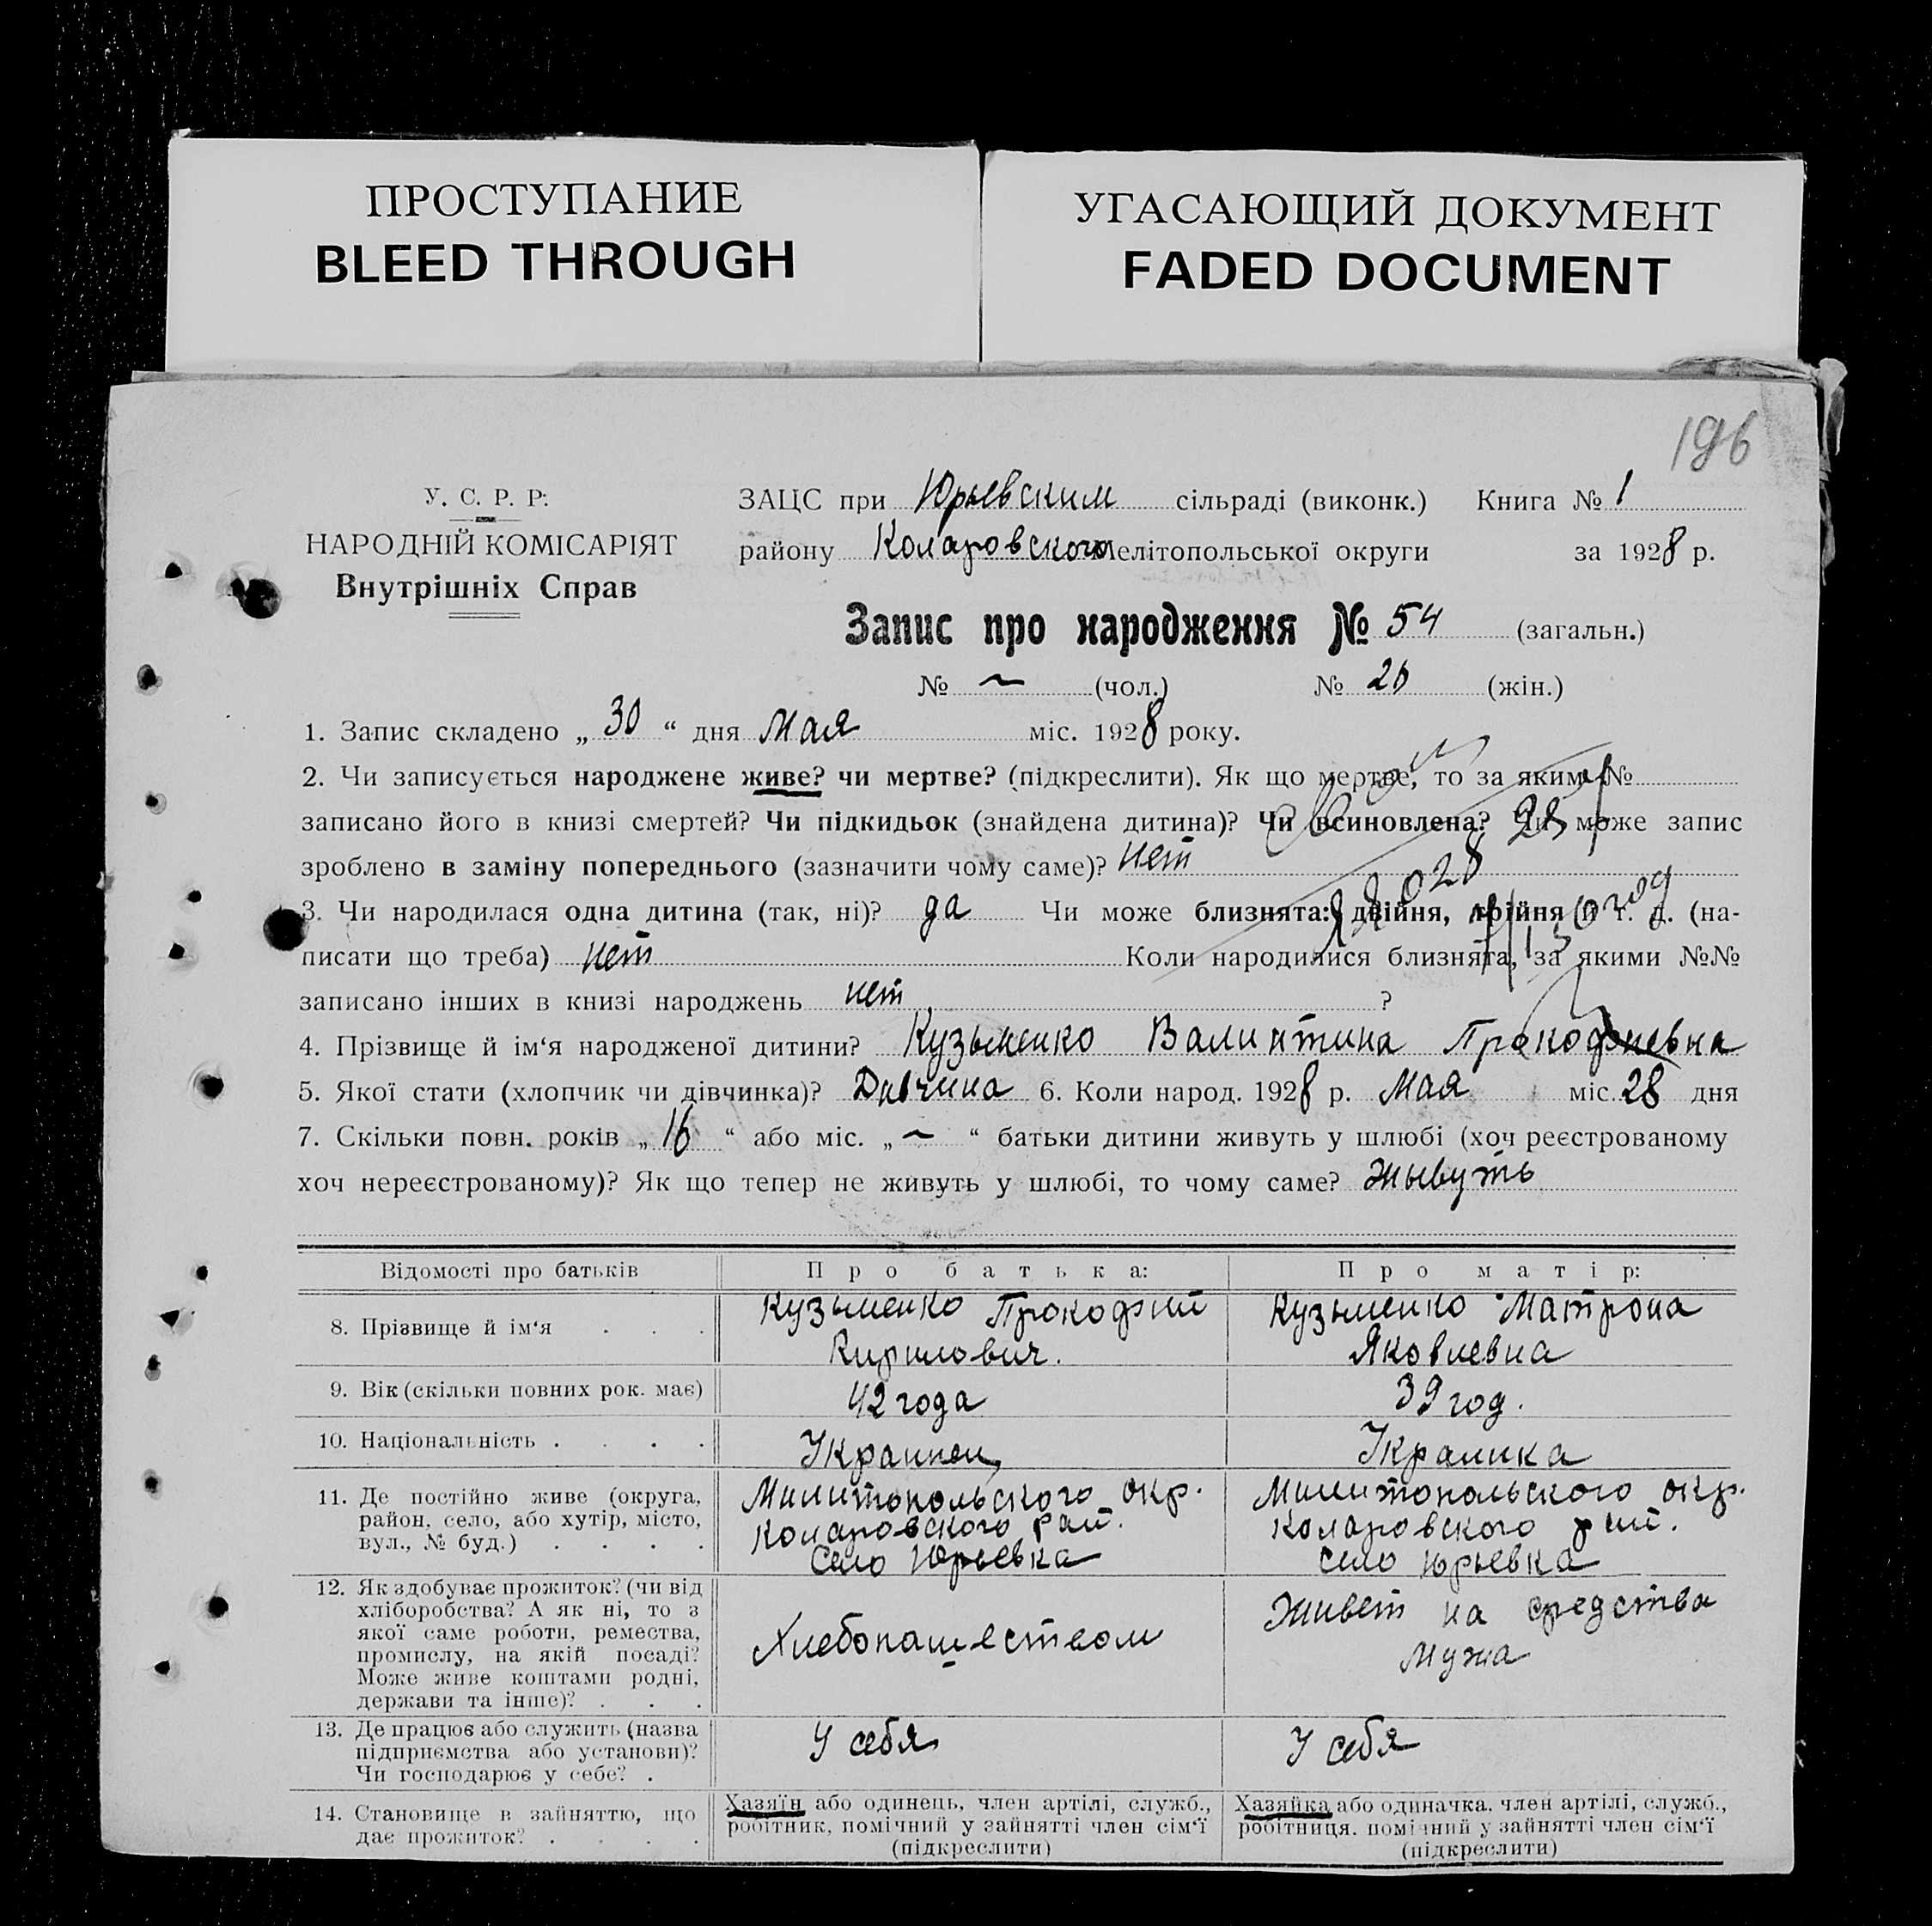 ПРОСТУПАНИЕ
BLEED THROUGH
УГАСАЮЩИЙ ДОКУМЕНТ
FADED DOCUMENT
196
У. С. Р. Р.
НАРОДНІЙ КОМІСАРІЯТ
Внутрішніх Справ
ЗАЦС при Юрьевским сільраді (виконк.) Книга № 1
району Коларовского Мелітопольської округи за 1928 р.
Запис про народження № 54 (загальн.)
№ ~ (чол.) № 26 (жін.)
1. Запис складено „ 30 “ дня Мая міс. 1928 року.
2. Чи записується народжене живе? чи мертве? (підкреслити). Як що мертве, то за яким №
записано його в книзі смертей? Чи підкидьок (знайдена дитина)? Чи всиновлена? Чи може запис
зроблено в заміну попереднього (зазначити чому саме)? нет
3. Чи народилася одна дитина (так, ні)? да Чи може близнята: двійня, трійня і т. д. (на-
писати що треба) нет Коли народилися близнята, за якими №№
записано інших в книзі народжень нет ?
4. Прізвище й ім‘я народженої дитини? Кузьменко Валинтина Прокофиевна
5. Якої стати (хлопчик чи дівчинка)? Дивчина 6. Коли народ. 1928 р. Мая міс. 28 дня
7. Скільки повн. років „ 16 “ або міс. „ ~ “ батьки дитини живуть у шлюбі (хоч реєстрованому
хоч нереєстрованому)? Як що тепер не живуть у шлюбі, то чому саме? Жывуть
Відомості про батьків Про батька: Про матір:
8. Прізвище й ім‘я . . . Кузьменко Прокофий Кирилович. Кузьменко Матрона Яковлевна
9. Вік (скільки повних рок. має) 42 года 39 год.
10. Національність . . . . Украинец Украинка
11. Де постійно живе (округа,
район, село, або хутір, місто,
вул., № буд.) . . . .
Милитопольского окр.
Коларовского рай.
Село Юрьевка
Милитопольского окр.
Коларовского рай.
село Юрьевка
12. Як здобуває прожиток? (чи від
хліборобства? А як ні, то з
якої саме роботи, ремества,
промислу, на якій посаді?
Може живе коштами родні,
держави та інше)? . . .
Хлебопашеством
Живет на средства
Мужа
13. Де працює або служить (назва
підприємства або установи)?
Чи господарює у себе? .
У себя
У себя
14. Становище в зайняттю, що
дає прожиток? . . . .
Хазяїн або одинець, член артілі, служб.,
робітник, помічний у зайнятті член сім‘ї
(підкреслити)
Хазяйка або одиначка, член артілі, служб.,
робітниця, помічний у зайнятті член сім‘ї
(підкреслити)